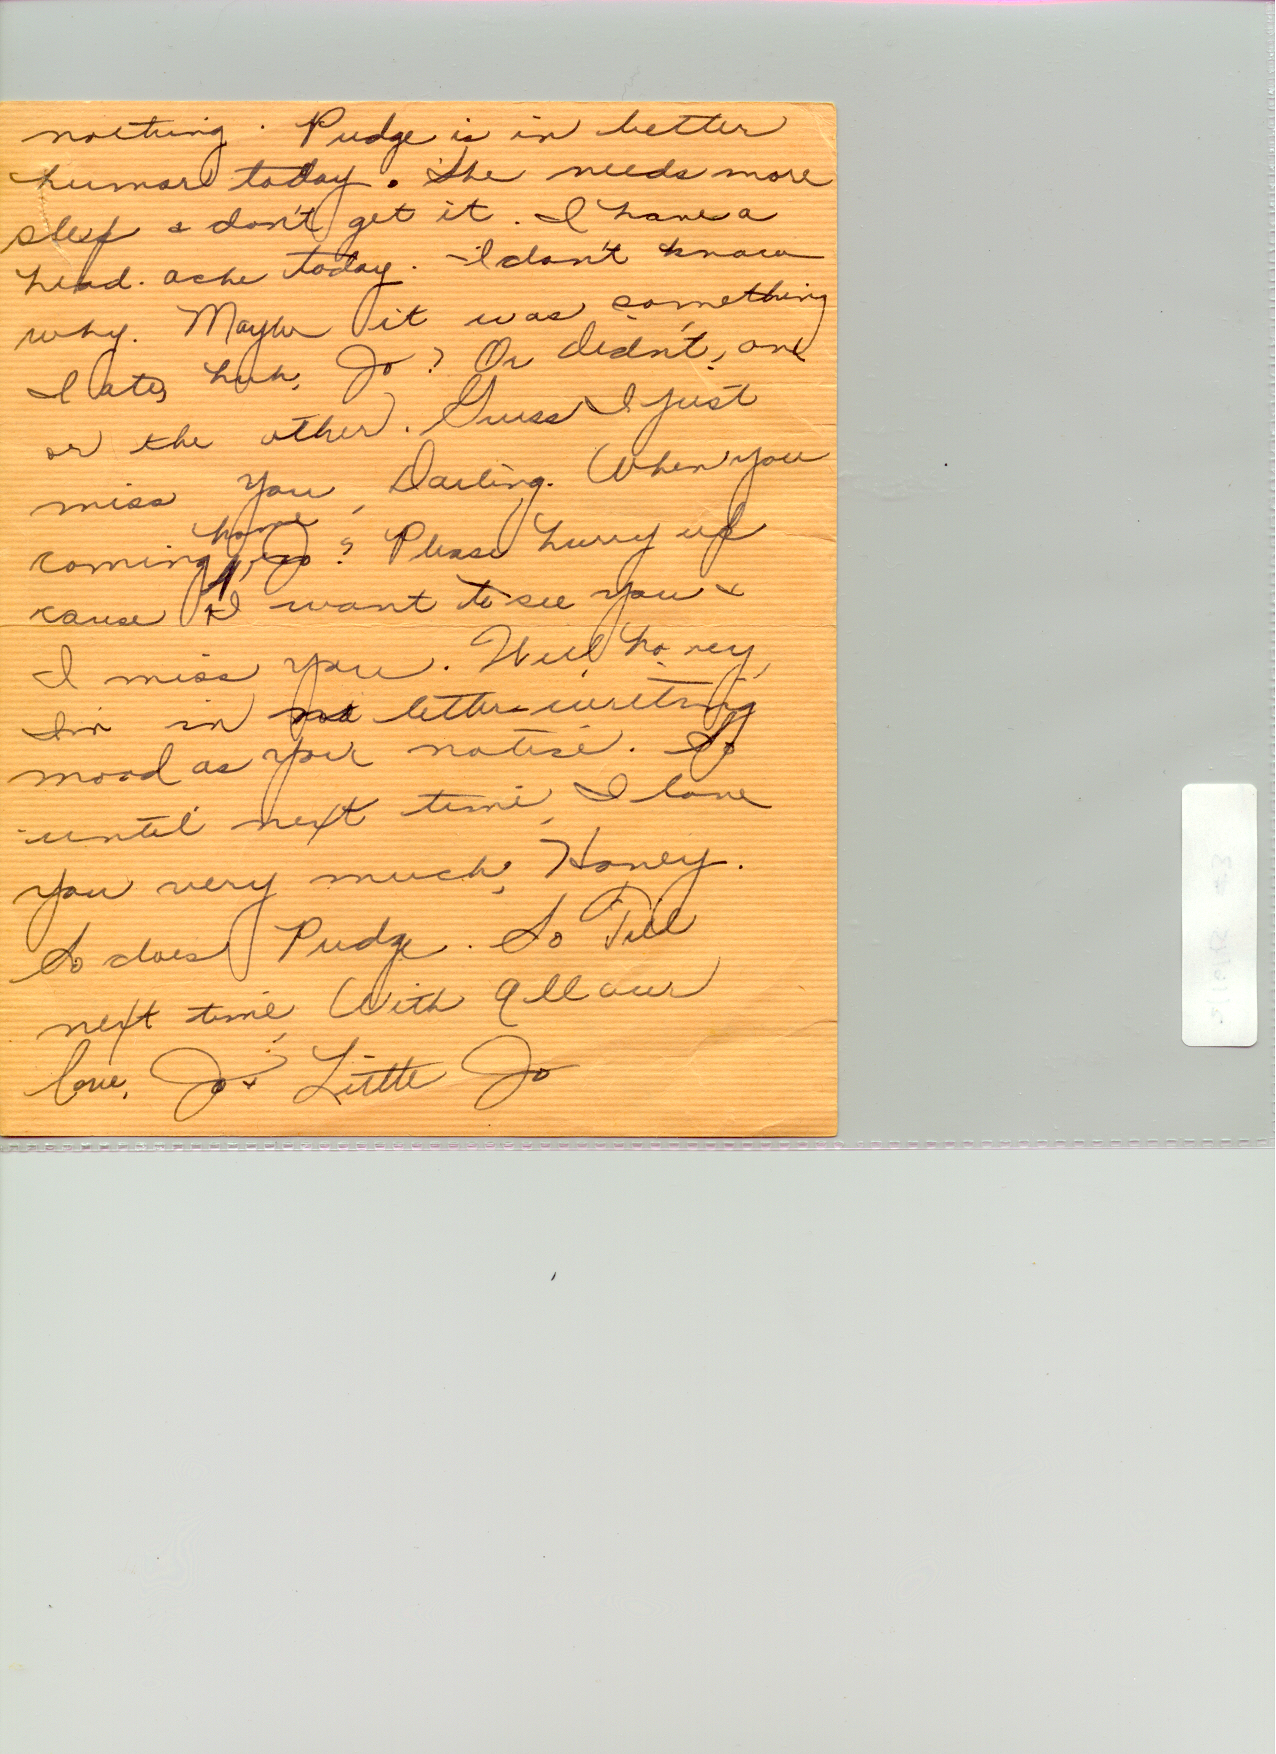 nothing. Pudge is in better
humor today. She needs more
sleep & don't get it. I have a
head. ache today. I don't know
why. Maybe it was something
I ate, huh, Jo? Or didn't, one
or the other. Guess I just
miss you, Darling. When you
coming home, Jo? Please hurry up
cause I want to see you &
I miss you. Well honey,
I'm in no letter writing
mood as you notice. So
until next time, I love
you very much, Honey.
So does Pudge. So Till
next time With all our
love, Jo & Little Jo